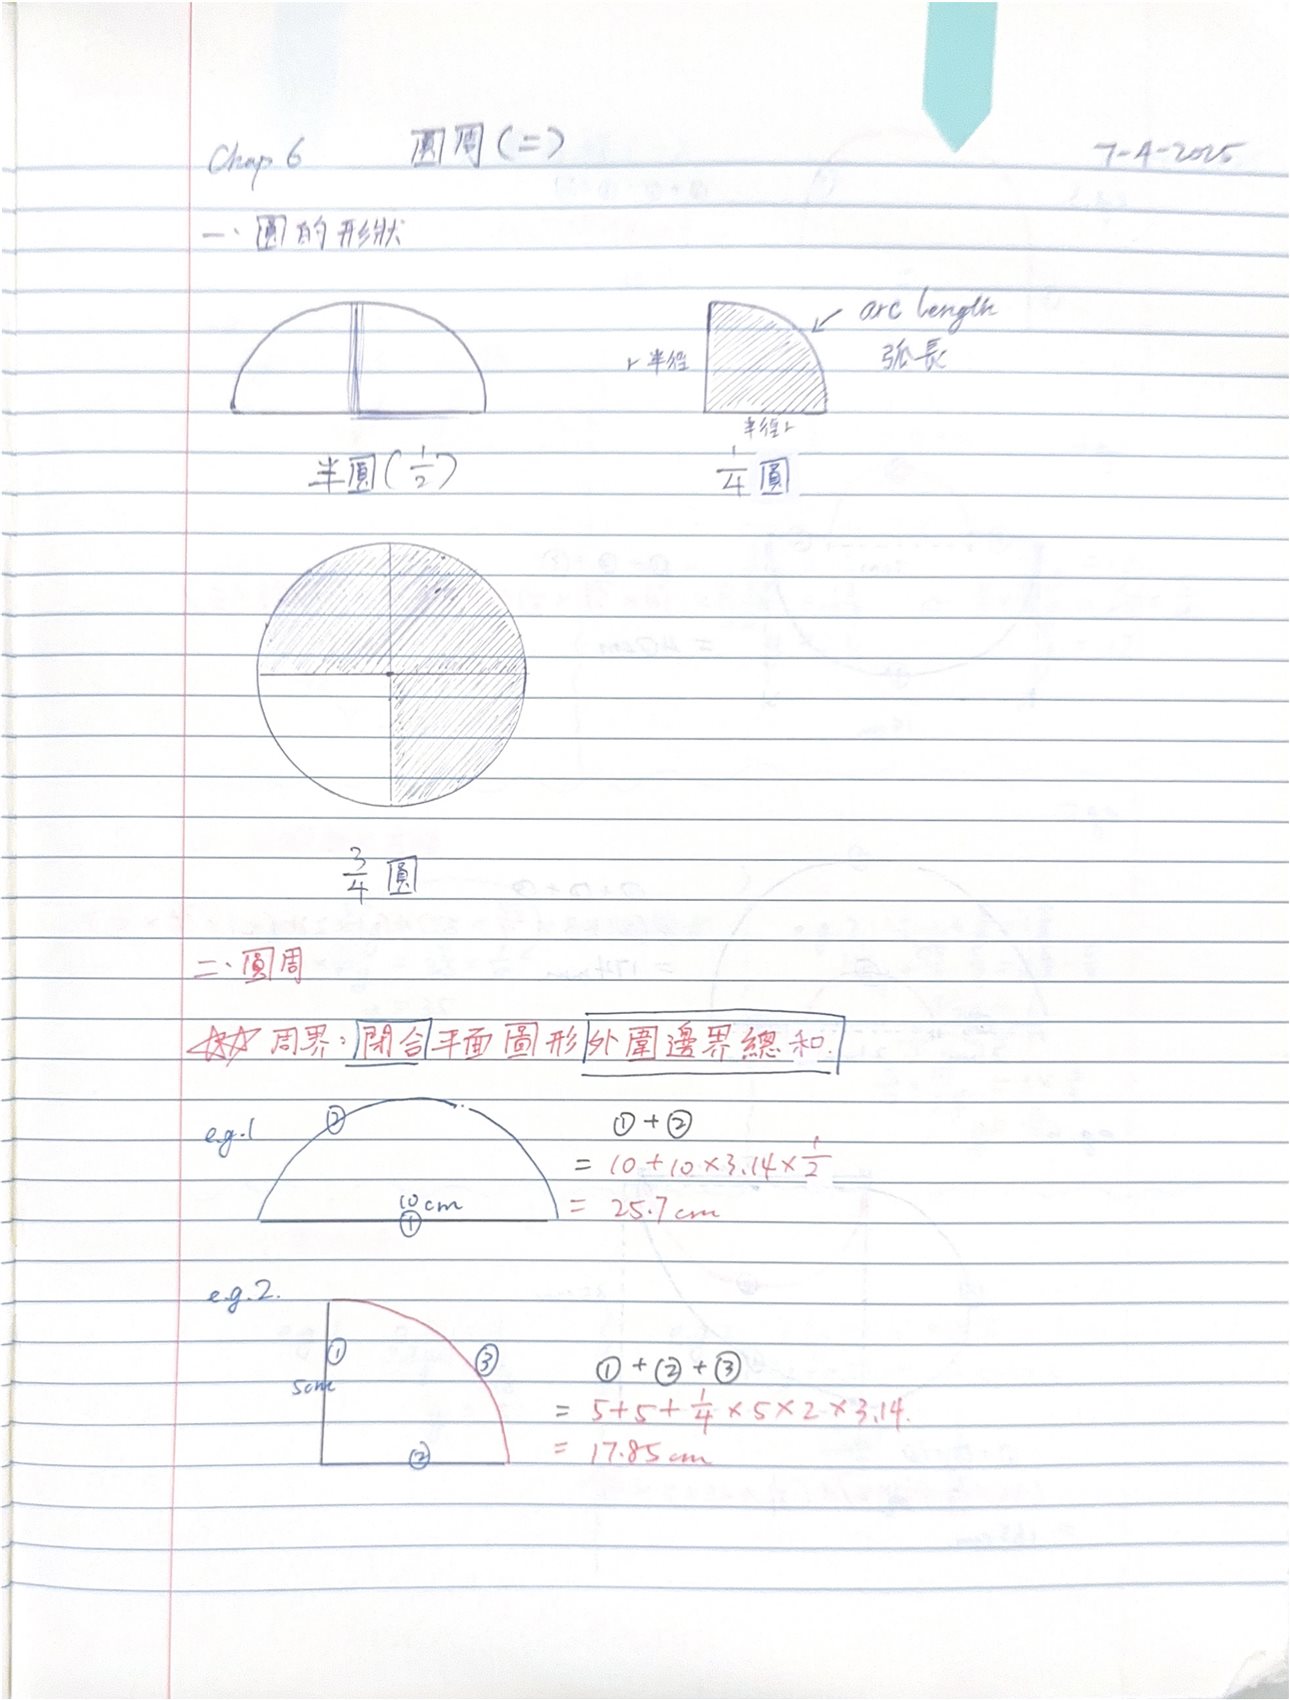 Chap 6 圓周(二) 7-4-2025
一、圓的形狀
arc length
弧長
r 半徑
半徑 r
半圓(1/2)
1/4 圓
3/4 圓
二、圓周
☆☆ 周界:閉合平面圖形外圍邊界總和.
e.g.1
②
10cm
①
①+②
= 10+10×3.14×1/2
= 25.7cm
e.g.2.
①
5cm
③
②
①+②+③
= 5+5+1/4×5×2×3.14.
= 17.85cm